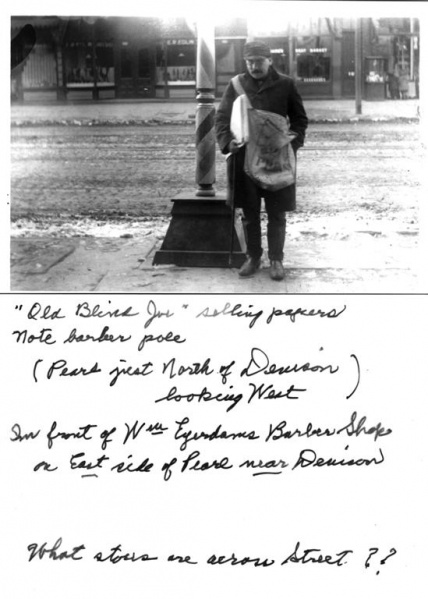 "Old Blind Joe" selling papers
Note barber pole
(Pearl just North of Denison
looking West)
In front of Wm Egerdams Barber Shop
on East side of Pearl near Denison
What stores are across Street ??